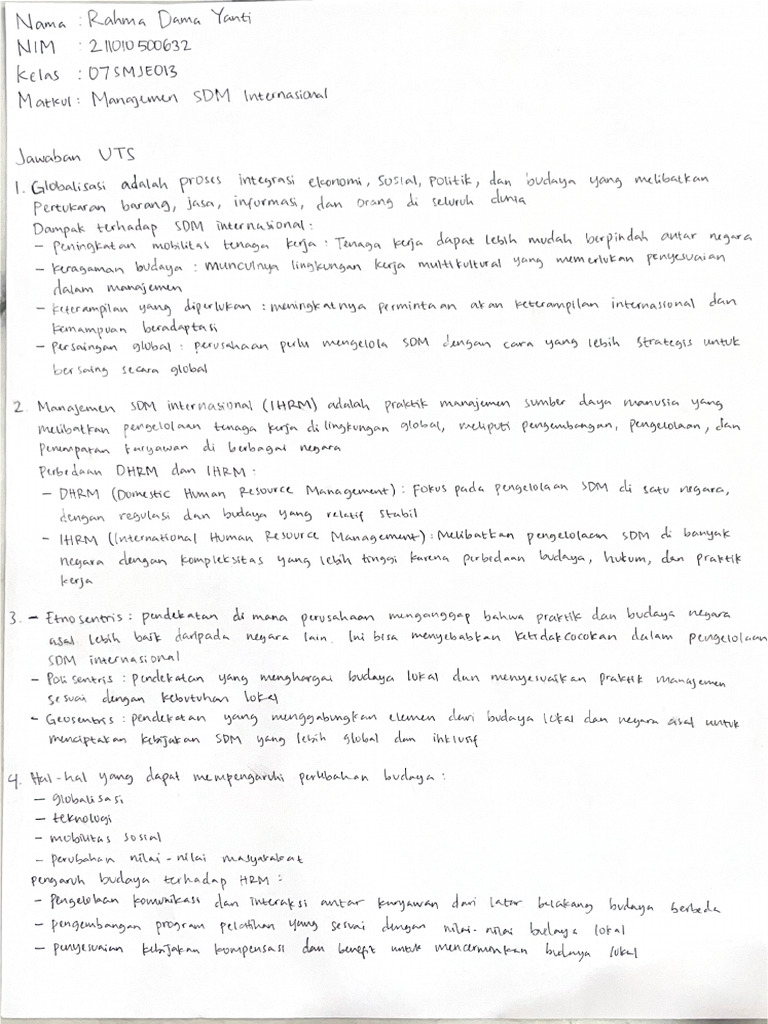 Nama : Rahma Dama Yanti
NIM : 211010500632
Kelas : 07SMJE013
Matkul : Managemen SDM Internasional
Jawaban UTS
1. Globalisasi adalah proses integrasi ekonomi, sosial, politik, dan budaya yang melibatkan
pertukaran barang, jasa, informasi, dan orang di seluruh dunia
Dampak terhadap SDM internasional :
- Peningkatan mobilitas tenaga kerja : Tenaga kerja dapat lebih mudah berpindah antar negara
- Keragaman budaya : munculnya lingkungan kerja multikultural yang memerlukan penyesuaian
dalam manajemen
- Keterampilan yang diperlukan : meningkatnya permintaan akan keterampilan internasional dan
kemampuan beradaptasi
- Persaingan global : perusahaan perlu mengelola SDM dengan cara yang lebih strategis untuk
bersaing secara global
2. Manajemen SDM internasional (IHRM) adalah praktik manajemen sumber daya manusia yang
melibatkan pengelolaan tenaga kerja di lingkungan global, meliputi pengembangan, pengelolaan, dan
penempatan karyawan di berbagai negara
Perbedaan DHRM dan IHRM :
- DHRM (Domestic Human Resource Management) : Fokus pada pengelolaan SDM di satu negara,
dengan regulasi dan budaya yang relatif stabil
- IHRM (International Human Resource Management) : Melibatkan pengelolaan SDM di banyak
negara dengan kompleksitas yang lebih tinggi karena perbedaan budaya, hukum, dan praktik
kerja
3. - Etnosentris : pendekatan di mana perusahaan menganggap bahwa praktik dan budaya negara
asal lebih baik daripada negara lain. Ini bisa menyebabkan ketidakcocokan dalam pengelolaan
SDM internasional
- Polisentris : pendekatan yang menghargai budaya lokal dan menyesuaikan praktik manajemen
sesuai dengan kebutuhan lokal
- Geosentris : pendekatan yang menggabungkan elemen dari budaya lokal dan negara asal untuk
menciptakan kebijakan SDM yang lebih global dan inklusif
4. Hal-hal yang dapat mempengaruhi perubahan budaya :
- globalisasi
- teknologi
- mobilitas sosial
- perubahan nilai-nilai masyarakat
pengaruh budaya terhadap HRM :
- Pengelolaan komunikasi dan interaksi antar karyawan dari latar belakang budaya berbeda
- pengembangan program pelatihan yang sesuai dengan nilai-nilai budaya lokal
- penyesuaian kebijakan kompensasi dan benefit untuk mencerminkan budaya lokal